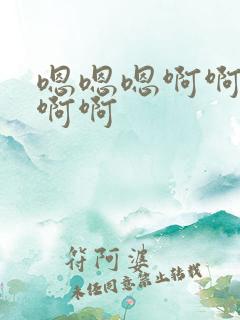 嗯嗯嗯啊啊
啊啊
符阿婆
未经同意禁止转载